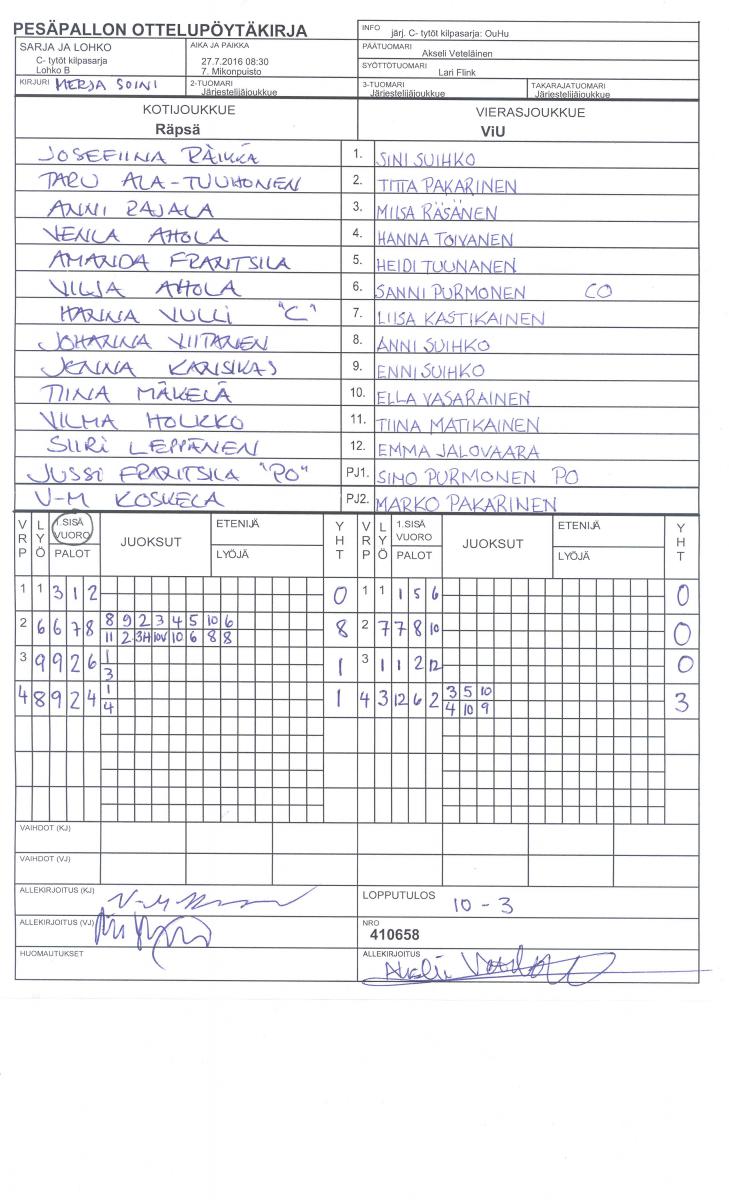 PESÄPALLON OTTELUPÖYTÄKIRJA
INFO järj. C- tytöt kilpasarja: OuHu
SARJA JA LOHKO
C- tytöt kilpasarja
Lohko B
AIKA JA PAIKKA
27.7.2016 08:30
7. Mikonpuisto
PÄÄTUOMARI
Akseli Veteläinen
SYÖTTÖTUOMARI
Lari Flink
KIRJURI MERJA SOINI
2-TUOMARI
Järjestelijäjoukkue
3-TUOMARI
Järjestelijäjoukkue
TAKARAJATUOMARI
Järjestelijäjoukkue
KOTIJOUKKUE
Räpsä
VIERASJOUKKUE
ViU
JOSEFIINA RÄIKKÄ 1. SINI SUIHKO
TARU ALA-TUUHONEN 2. TITTA PAKARINEN
ANNI RAJALA 3. MILSA RÄSÄNEN
VENLA AHOLA 4. HANNA TOIVANEN
AMANDA FRANTSILA 5. HEIDI TUUNANEN
VILJA AHOLA 6. SANNI PURMONEN CO
HANNA VULLI "C" 7. LIISA KASTIKAINEN
JOHANNA VIITANEN 8. ANNI SUIHKO
JENNA KANSIKAS 9. ENNI SUIHKO
TIINA MÄKELÄ 10. ELLA VASARAINEN
VILMA HOLKKO 11. TIINA MATIKAINEN
SIIRI LEPPÄNEN 12. EMMA JALOVAARA
JUSSI FRANTSILA "PO" PJ1. SIMO PURMONEN PO
V-M KOSKELA PJ2. MARKO PAKARINEN
VRP LYÖ 1.SISÄ VUORO PALOT JUOKSUT ETENIJÄ LYÖJÄ YHT VRP LYÖ 1.SISÄ VUORO PALOT JUOKSUT ETENIJÄ LYÖJÄ YHT
1 1 3 1 2 0 1 1 1 5 6 0
2 6 6 7 8 8 9 2 3 4 5 10 6 8 2 7 7 8 10 0
11 2 3H 10V 10 6 8 8
3 9 9 2 6 1 1 3 1 1 2 12 0
3
4 8 9 2 4 1 1 4 3 12 6 2 3 5 10 3
4 4 10 9
VAIHDOT (KJ)
VAIHDOT (VJ)
ALLEKIRJOITUS (KJ)
LOPPUTULOS 10 - 3
ALLEKIRJOITUS (VJ)
NRO
410658
HUOMAUTUKSET
ALLEKIRJOITUS